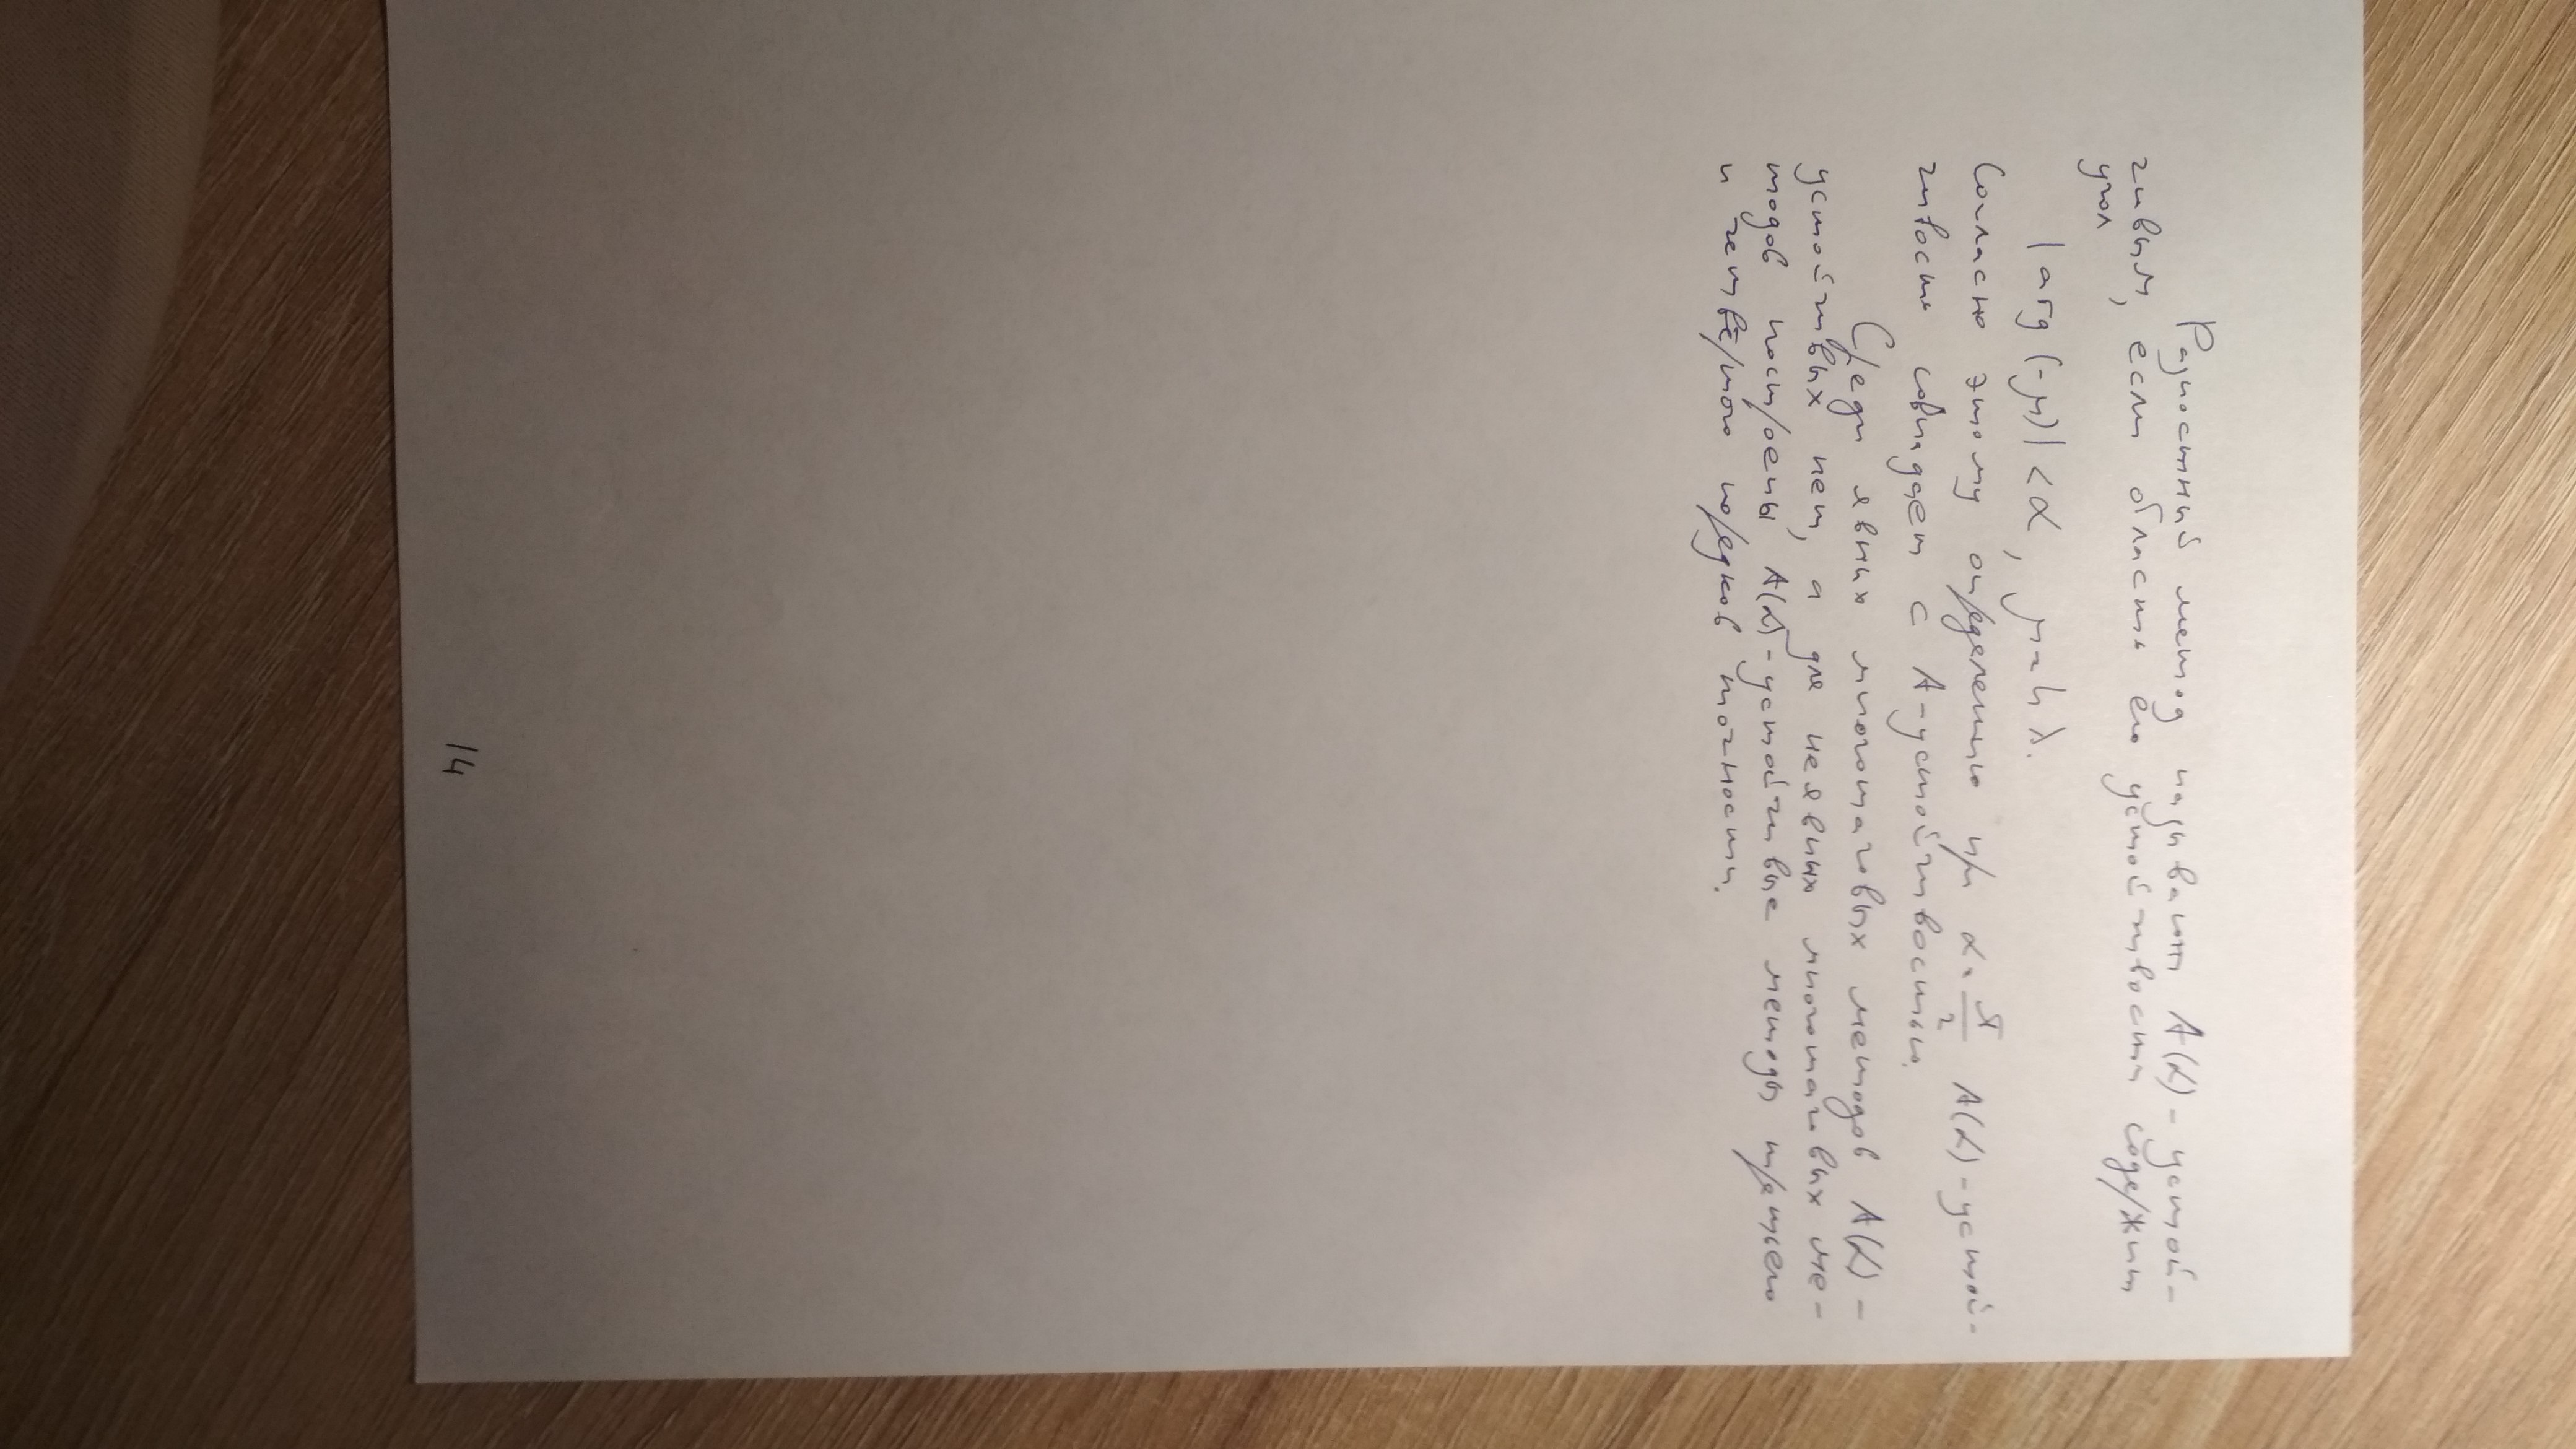 Разностный метод называют A(α)-устой-
чивым, если область его устойчивости содержит
угол
|arg(-μ)| < α, μ = hλ.
Согласно этому определению при α = π/2 A(α)-устой-
чивость совпадает с A-устойчивостью.
Среди явных многошаговых методов A(α)-
устойчивых нет, а для неявных многошаговых ме-
тодов построены A(α)-устойчивые методы третьего
и четвёртого порядков точности.
14